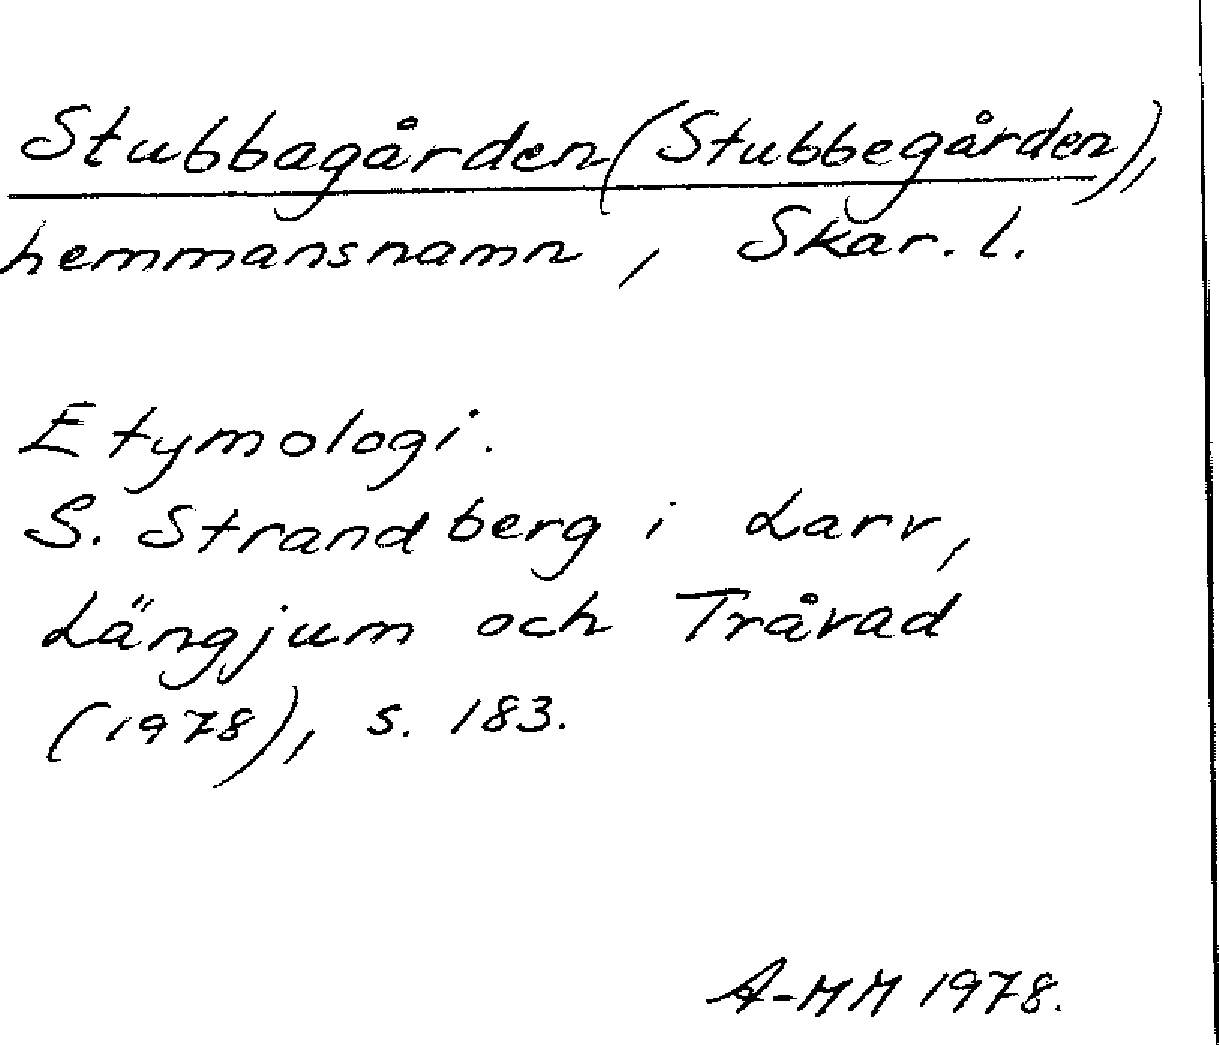 Stubbagården (Stubbegården),
hemmansnamn, Skar. l.
Etymologi.
S. Strandberg i Larv,
Längjum och Tråvad
(1978), s. 183.
A-MM 1978.